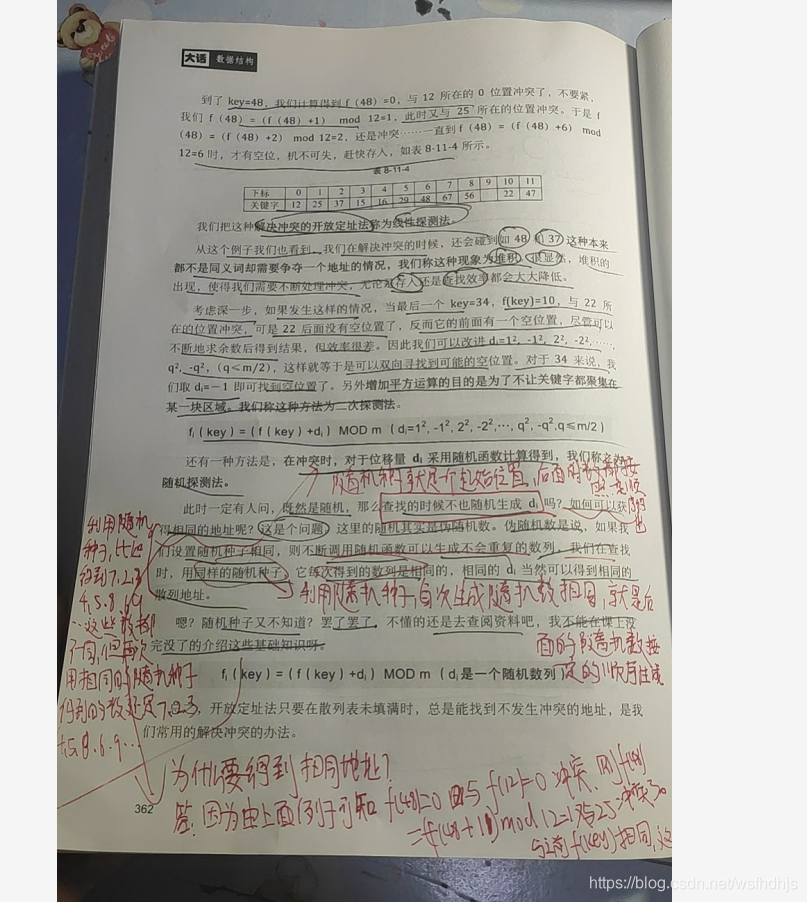 大话 数据结构
到了 key=48, 我们计算得到 f (48) =0, 与 12 所在的 0 位置冲突了, 不要紧,
我们 f (48) = (f (48) +1) mod 12=1, 此时又与 25 所在的位置冲突。于是 f
(48) = (f (48) +2) mod 12=2, 还是冲突……一直到 f (48) = (f (48) +6) mod
12=6 时, 才有空位, 机不可失, 赶快存入, 如表 8-11-4 所示。
表 8-11-4
下标 0 1 2 3 4 5 6 7 8 9 10 11
关键字 12 25 37 15 16 29 48 67 56 22 47
我们把这种解决冲突的开放定址法称为线性探测法。
从这个例子我们也看到, 我们在解决冲突的时候, 还会碰到如 48 和 37 这种本来
都不是同义词却需要争夺一个地址的情况, 我们称这种现象为堆积。很显然, 堆积的
出现, 使得我们需要不断处理冲突, 无论是存入还是查找效率都会大大降低。
考虑深一步, 如果发生这样的情况, 当最后一个 key=34, f(key)=10, 与 22 所
在的位置冲突, 可是 22 后面没有空位置了, 反而它的前面有一个空位置, 尽管可以
不断地求余数后得到结果, 但效率很差。因此我们可以改进 di=1², -1², 2², -2²,……,
q², -q², (q≤m/2), 这样就等于是可以双向寻找到可能的空位置。对于 34 来说, 我
们取 di=−1 即可找到空位置了。另外增加平方运算的目的是为了不让关键字都聚集在
某一块区域。我们称这种方法为二次探测法。
fi (key) = (f (key) +di) MOD m (di=1², -1², 2², -2²,…, q², -q²,q≤m/2)
还有一种方法是, 在冲突时, 对于位移量 di 采用随机函数计算得到, 我们称之为
随机探测法。
随机种子就是个起始位置, 后面的
此时一定有人问, 既然是随机, 那么查找的时候不也随机生成 di 吗? 如何可以获
得相同的地址呢? 这是个问题。这里的随机其实是伪随机数。伪随机数是说, 如果我
们设置随机种子相同, 则不断调用随机函数可以生成不会重复的数列, 我们在查找
时, 用同样的随机种子, 它每次得到的数列是相同的, 相同的 di 当然可以得到相同的
散列地址。
利用随机种子, 每次生成随机数相同, 就是后
面的随机数按
一定的
利用随机
种子, 比如
得到7.2.3
4.5.8.6.9
…这些数都
不同, 但再次
用相同的随机种子
得到的数还是7.2.3,
4.5.8.6.9…
嗯? 随机种子又不知道? 罢了罢了, 不懂的还是去查阅资料吧, 我不能在课上没
完没了的介绍这些基础知识呀。
fi (key) = (f (key) +di) MOD m (di 是一个随机数列)
, 开放定址法只要在散列表未填满时, 总是能找到不发生冲突的地址, 是我
们常用的解决冲突的办法。
为什么要得到相同地址?
答: 因为由上面例子可知 f(48)=0 与 f(12)=0 冲突, 则 f(48)
=(f(48)+1) mod 12=1 与25冲突了
f(key)相同, 这
362
https://blog.csdn.net/wsfhdhjs